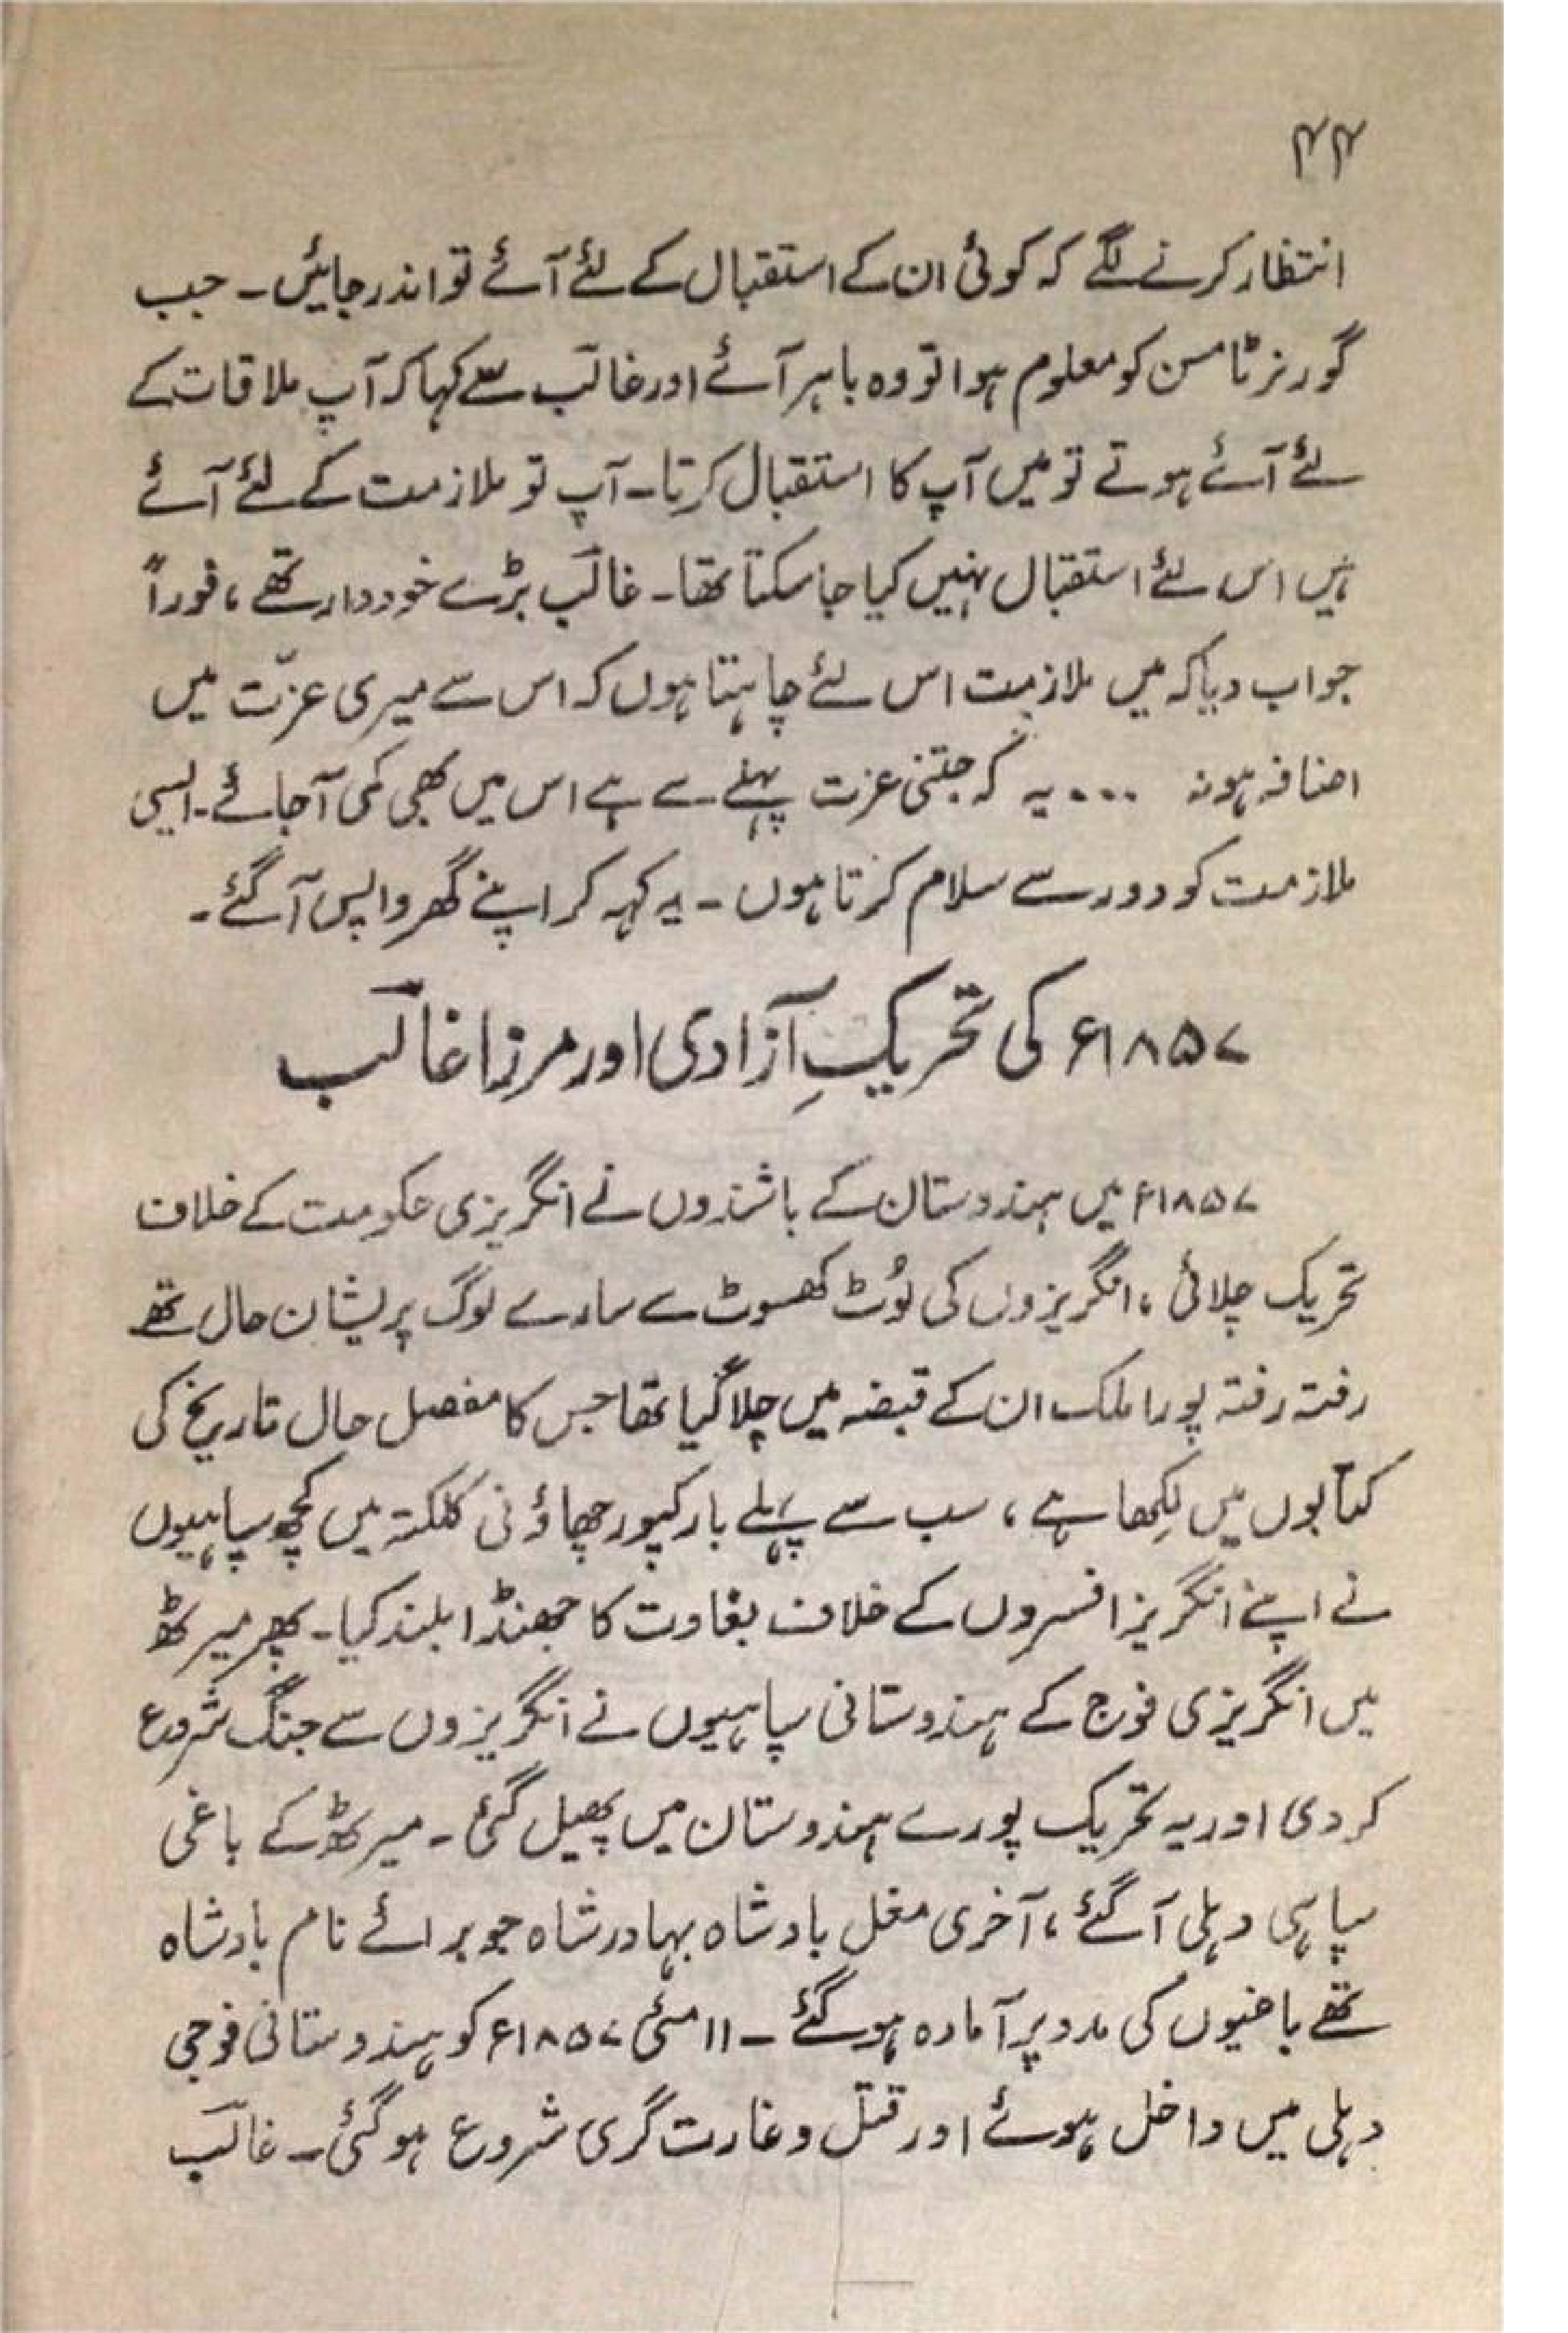 ۴۴
انتظار کرنے لگے کہ کوئی ان کے استقبال کے لئے آئے تو اندر جائیں ۔ جب
گورنر ٹامسن کو معلوم ہوا تو وہ باہر آئے اور غالبؔ سے کہا کہ آپ ملاقات کے
لئے آئے ہوتے تو میں آپ کا استقبال کرتا ۔ آپ تو ملازمت کے لئے آئے
ہیں اس لئے استقبال نہیں کیا جا سکتا تھا ۔ غالبؔ بڑے خوددار تھے ، فوراً
جواب دیا کہ میں ملازمت اس لئے چاہتا ہوں کہ اس سے میری عزّت میں
اضافہ ہو نہ ... یہ کہ جتنی عزت پہلے سے ہے اس میں بھی کمی آ جائے ۔ ایسی
ملازمت کو دور سے سلام کرتا ہوں ۔ یہ کہہ کر اپنے گھر واپس آ گئے ۔
۱۸۵۷ء کی تحریکِ آزادی اور مرزا غالبؔ
۱۸۵۷ء میں ہندوستان کے باشندوں نے انگریزی حکومت کے خلاف
تحریک چلائی ، انگریزوں کی لُوٹ کھسوٹ سے سارے لوگ پریشان حال تھے
رفتہ رفتہ پورا ملک ان کے قبضہ میں چلا گیا تھا جس کا مفصل حال تاریخ کی
کتابوں میں لِکھا ہے ، سب سے پہلے بارکپور چھاؤنی کلکتہ میں کچھ سپاہیوں
نے اپنے انگریز افسروں کے خلاف بغاوت کا جھنڈا بلند کیا ۔ پھر میرٹھ
میں انگریزی فوج کے ہندوستانی سپاہیوں نے انگریزوں سے جنگ شروع
کر دی اور یہ تحریک پورے ہندوستان میں پھیل گئی ۔ میرٹھ کے باغی
سپاہی دہلی آ گئے ، آخری مغل بادشاہ بہادر شاہ جو برائے نام بادشاہ
تھے باغیوں کی مدد پر آمادہ ہو گئے ۔ ۱۱ مئی ۱۸۵۷ء کو ہندوستانی فوجی
دہلی میں داخل ہوئے اور قتل و غارت گری شروع ہو گئی ۔ غالبؔ